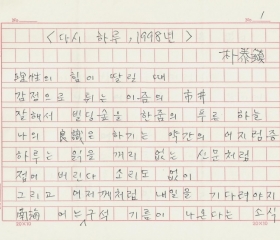 1
<다시 하루, 1998년>
朴泰鎭
理性의 힘이 딸릴 때
감정으로 뛰는 이즘의 市井
잘해서 빌딩숲을 한줌의 푸른 하늘
나의 良識은 하기는 약간의 어지럼증
하루는 읽을 게리 없는 신문처럼
접어 버린다 소리도 없이
그리고 어저께처럼 내일을 기다려야지
南海 어느 구석 기름이 나온다는 소식